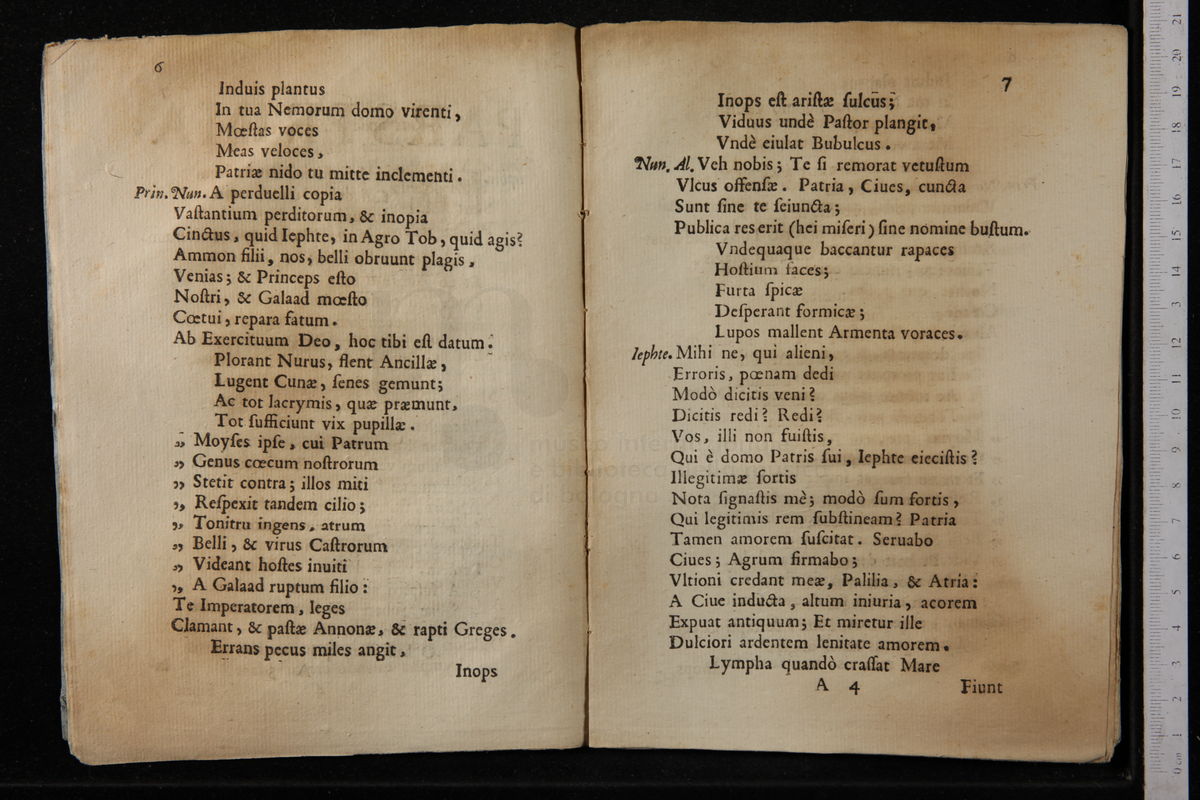 6
Induis plantus
In tua Nemorum domo virenti,
Mœſtas voces
Meas veloces,
Patriæ nido tu mitte inclementi.
Prin. Nun. A perduelli copia
Vaſtantium perditorum, & inopia
Cinctus, quid Iephte, in Agro Tob, quid agis?
Ammon filii, nos, belli obruunt plagis,
Venias; & Princeps eſto
Noſtri, & Galaad mœſto
Cœtui, repara fatum.
Ab Exercituum Deo, hoc tibi eſt datum.
Plorant Nurus, flent Ancillæ,
Lugent Cunæ, ſenes gemunt;
Ac tot lacrymis, quæ præmunt,
Tot ſufficiunt vix pupillæ.
„ Moyſes ipſe, cui Patrum
„ Genus cœcum noſtrorum
„ Stetit contra; illos miti
„ Reſpexit tandem cilio;
„ Tonitru ingens, atrum
„ Belli, & virus Caſtrorum
„ Videant hoſtes inuiti
„ A Galaad ruptum filio:
Te Imperatorem, leges
Clamant, & paſtæ Annonæ, & rapti Greges.
Errans pecus miles angit,
Inops
7
Inops eſt ariſtæ ſulcus;
Viduus undè Paſtor plangit,
Vndè eiulat Bubulcus.
Nun. Al. Veh nobis; Te ſi remorat vetuſtum
Vlcus offenſæ. Patria, Ciues, cuncta
Sunt ſine te ſeiuncta;
Publica res erit (hei miſeri) ſine nomine buſtum.
Vndequaque baccantur rapaces
Hoſtium faces;
Furta ſpicæ
Deſperant formicæ;
Lupos mallent Armenta voraces.
Iephte. Mihi ne, qui alieni,
Erroris, pœnam dedi
Modò dicitis veni?
Dicitis redi? Redi?
Vos, illi non fuiſtis,
Qui è domo Patris ſui, Iephte eieciſtis?
Illegitimæ ſortis
Nota ſignaſtis mè; modò ſum fortis,
Qui legitimis rem ſubſtineam? Patria
Tamen amorem ſuſcitat. Seruabo
Ciues; Agrum firmabo;
Vltioni credant meæ, Palilia, & Atria:
A Ciue inducta, altum iniuria, acorem
Expuat antiquum; Et miretur ille
Dulciori ardentem lenitate amorem.
Lympha quandò craſſat Mare
A 4 Fiunt